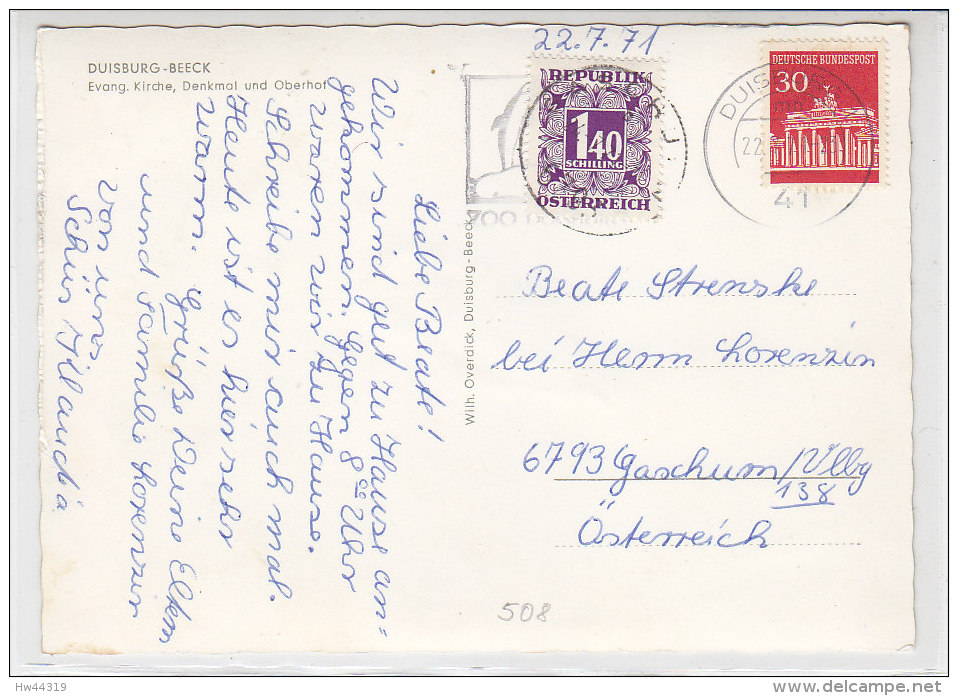 22.7.71
DUISBURG-BEECK
Evang. Kirche, Denkmal und Oberhof
REPUBLIK
1 40
SCHILLING
ÖSTERREICH
DEUTSCHE BUNDESPOST
30
DUISBURG
22.
41
700
Liebe Beate!
Wir sind gut zu Hause an=
gekommen. Gegen 8⁰⁰ Uhr
waren wir zu Hause.
Schreibe mir auch mal.
Heute ist es hier sehr
warm.
Grüße Deine Eltern
und Familie Lorenzin
von uns
Claudia
Wilh. Overdick, Duisburg-Beeck
Beate Strenske
bei Herrn Lorenzin
6793 Gaschurn/Vlbg
138
Österreich
508
Hw44319
delcampe.net